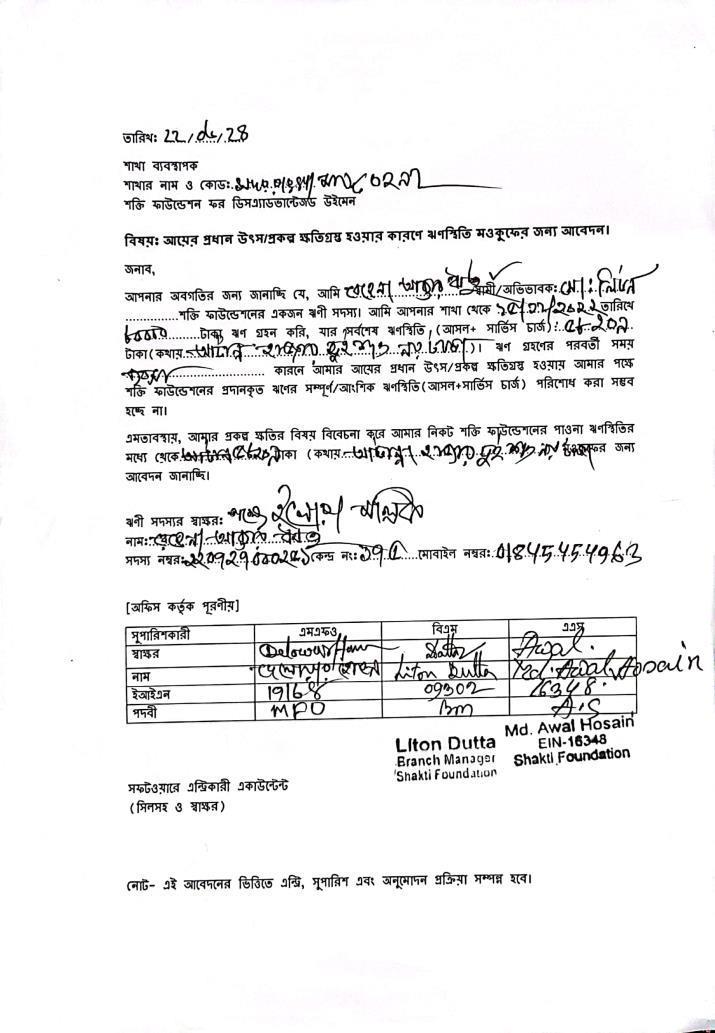 তারিখঃ
শাখা ব্যবস্থাপক
শাখার নাম ও কোডঃ
শক্তি ফাউন্ডেশন ফর ডিসএ্যাডভান্টেজড উইমেন
বিষয়ঃ আয়ের প্রধান উৎস/প্রকল্প ক্ষতিগ্রস্থ হওয়ার কারণে ঋণস্থিতি মওকুফের জন্য আবেদন।
জনাব,
আপনার অবগতির জন্য জানাচ্ছি যে, আমি স্বামী/অভিভাবকঃ মোঃ
শক্তি ফাউন্ডেশনের একজন ঋণী সদস্য। আমি আপনার শাখা থেকে তারিখে
টাকা ঋণ গ্রহন করি, যার সর্বশেষ ঋণস্থিতি (আসল+ সার্ভিস চার্জ)
টাকা(কথায় হাজার দুই শত নয় টাকা)। ঋণ গ্রহণের পরবর্তী সময়
কারনে আমার আয়ের প্রধান উৎস/প্রকল্প ক্ষতিগ্রস্থ হওয়ায় আমার পক্ষে
শক্তি ফাউন্ডেশনের প্রদানকৃত ঋণের সম্পূর্ণ/আংশিক ঋণস্থিতি(আসল+সার্ভিস চার্জ) পরিশোধ করা সম্ভব
হচ্ছে না।
এমতাবস্থায়, আমার প্রকল্প ক্ষতির বিষয় বিবেচনা করে আমার নিকট শক্তি ফাউন্ডেশনের পাওনা ঋণস্থিতির
মধ্যে থেকে টাকা (কথায় হাজার দুই শত নয় জন্য
আবেদন জানাচ্ছি।
ঋণী সদস্যর স্বাক্ষরঃ
নামঃ
সদস্য নম্বরঃ কেন্দ্র নংঃ মোবাইল নম্বরঃ 01845454963
[অফিস কর্তৃক পূরণীয়]
সুপারিশকারী এমএফও বিএম এএস
স্বাক্ষর Dutta Awal.
নাম Liton Dutta Md. Awal Hosain
ইআইএন 19168 09302 16348.
পদবী MPO Bm A.S
Liton Dutta
Branch Manager
Shakti Foundation
Md. Awal Hosain
EIN-16348
Shakti Foundation
সফটওয়ারে এন্ট্রিকারী একাউন্টেন্ট
(সিলসহ ও স্বাক্ষর)
নোট- এই আবেদনের ভিত্তিতে এন্ট্রি, সুপারিশ এবং অনুমোদন প্রক্রিয়া সম্পন্ন হবে।